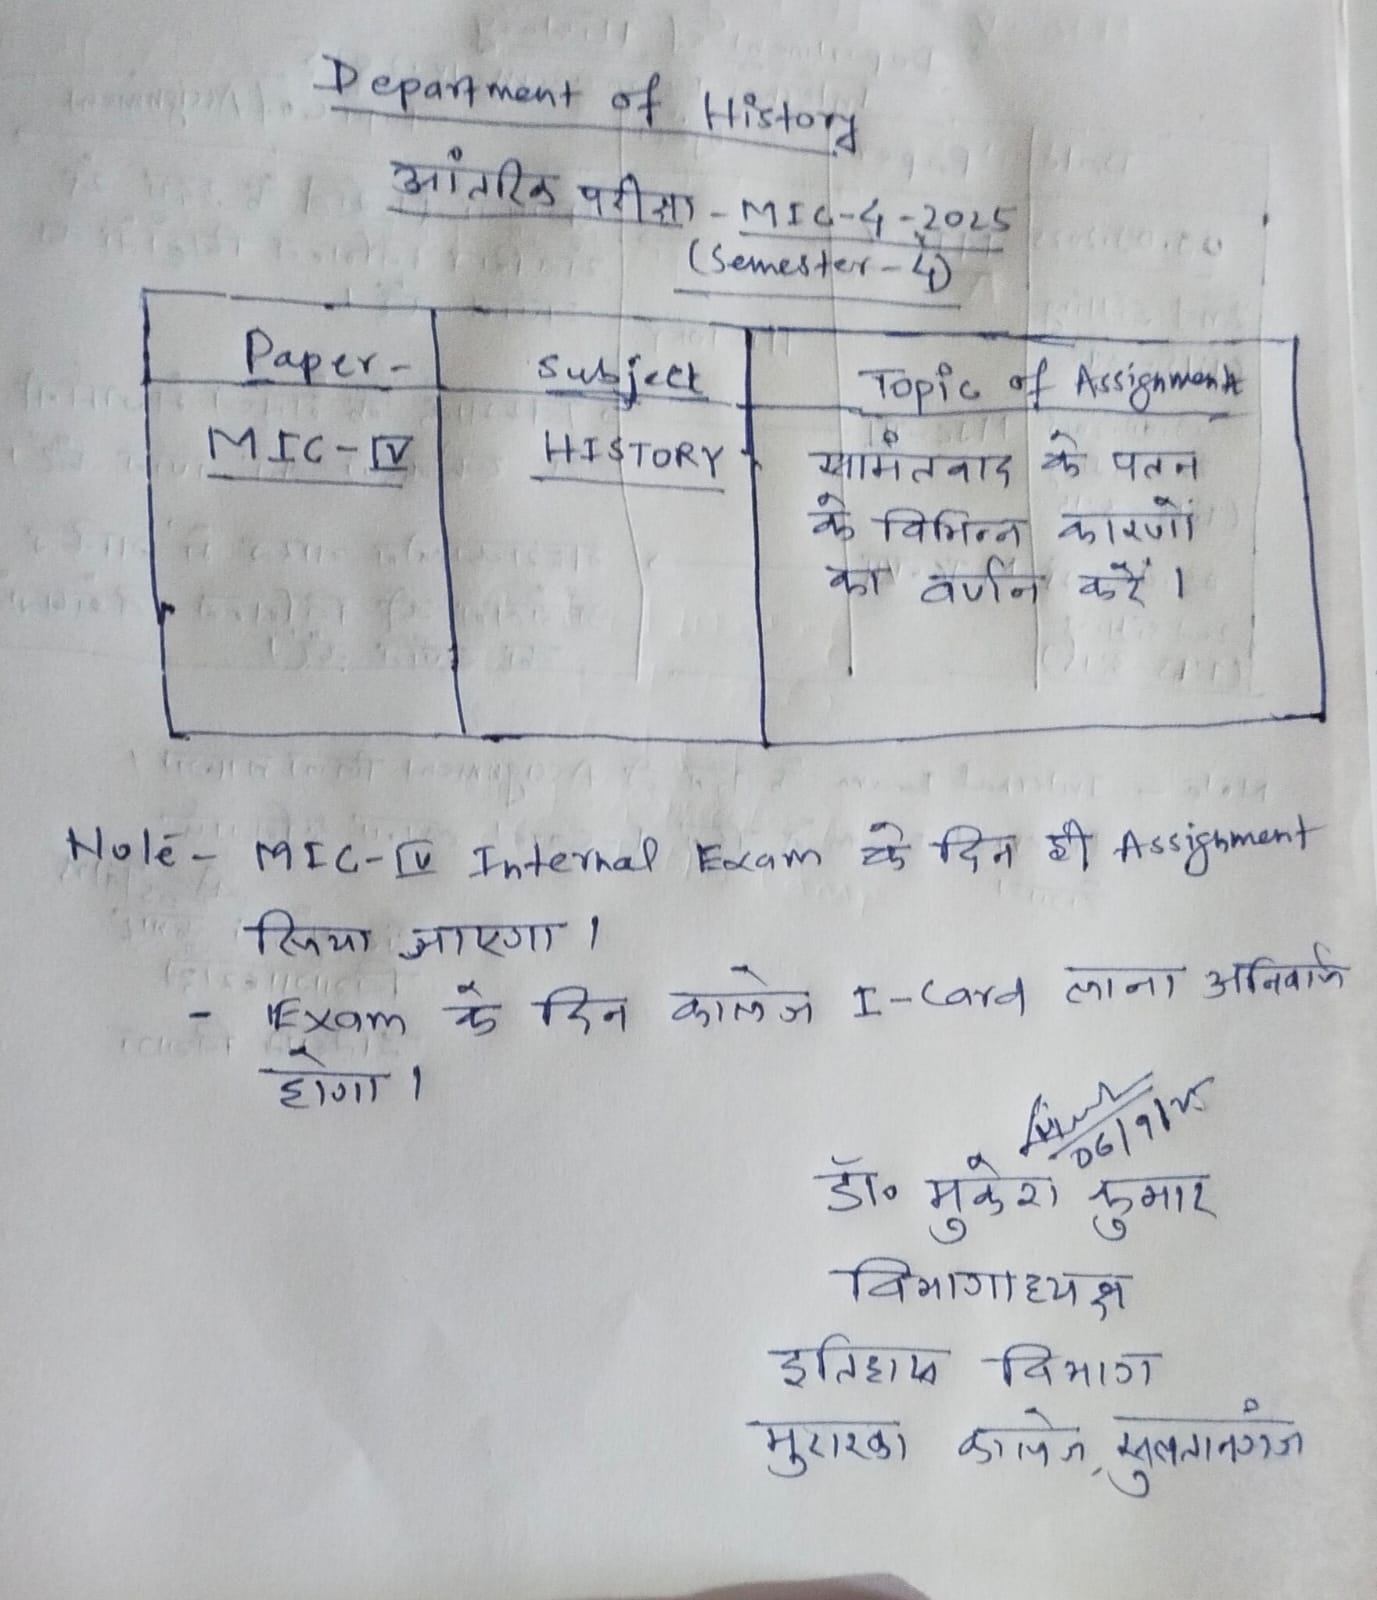 Department of History
आंतरिक परीक्षा - MIC-4-2025
(Semester-4)
Paper- Subject Topic of Assignment
MIC-IV HISTORY सामंतवाद के पतन
के विभिन्न कारणों
का वर्णन करें।
Note- MIC-IV Internal Exam के दिन ही Assignment
लिया जाएगा।
- Exam के दिन कालेज I-Card लाना अनिवार्य
होगा।
06/9/25
डॉ० मुकेश कुमार
विभागाध्यक्ष
इतिहास विभाग
मुरारका कालेज, सुलतानगंज